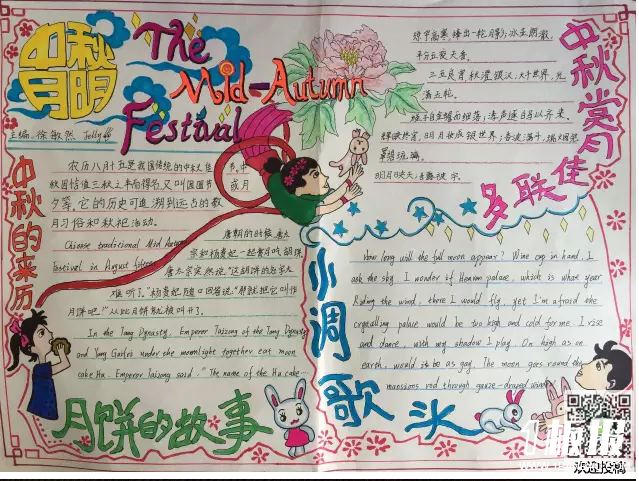 中秋
月明
The
Mid-Autumn
Festival
主编:徐敏然 Jelly
中秋的来历
农历八月十五是我国传统的中秋佳节,中
秋因恰值三秋之半而得名,又叫团圆节或月
夕等,它的历史可追溯到远古的敬
月习俗和秋祀活动。
Chinese traditional Mid Autumn
Festival in August fifteen
唐朝的时候,唐太
宗和杨贵妃一起赏月吃胡饼,
唐太宗突然说:"这胡饼的名字太
难听了。"杨贵妃随口回答说:"那就把它叫作
月饼吧。"从此月饼就被叫开了。
In the Tang Dynasty, Emperor Taizong of the Tang Dynasty
and Yang Guifei under the moonlight together eat moon
cake Hu. Emperor Taizong said: "The name of the Hu cake...
月饼的故事
中秋赏月
佳联多
平分五夜天香。
三五良宵,秋澄银汉;大千世界,光
满玉轮。
小调
歌头
How long will the full moon appear? Wine cup in hand, I
ask the sky. I wonder if Heavian palace, which is what year
Riding the wind, there I would fly, yet I'm afraid the
crystalling palace would be too high and cold for me. I rise
and dance, with my shadow I play. On high as on
earth, would it be as gay. The moon goes round the
mansions red through gauze-draped window
快报
欢迎投稿